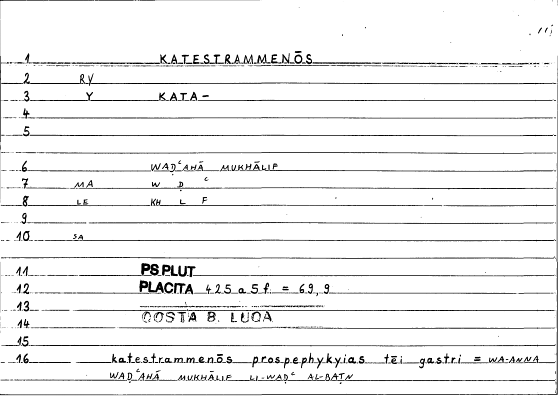 1 KATESTRAMMENŌS
2 RV
3 Y KATA-
4
5
6 WAḌʿAHĀ MUKHĀLIF
7 MA W Ḍ ʿ
8 LE KH L F
9
10 SA
11 PS PLUT
12 PLACITA 425 a 5 f. = 69,9
13
14 QOSTA B. LUQA
15
16 katestrammenōs prospephykyias tēi gastri = WA-ANNA
WAḌʿAHĀ MUKHĀLIF LI-WAḌʿ AL-BAṬN